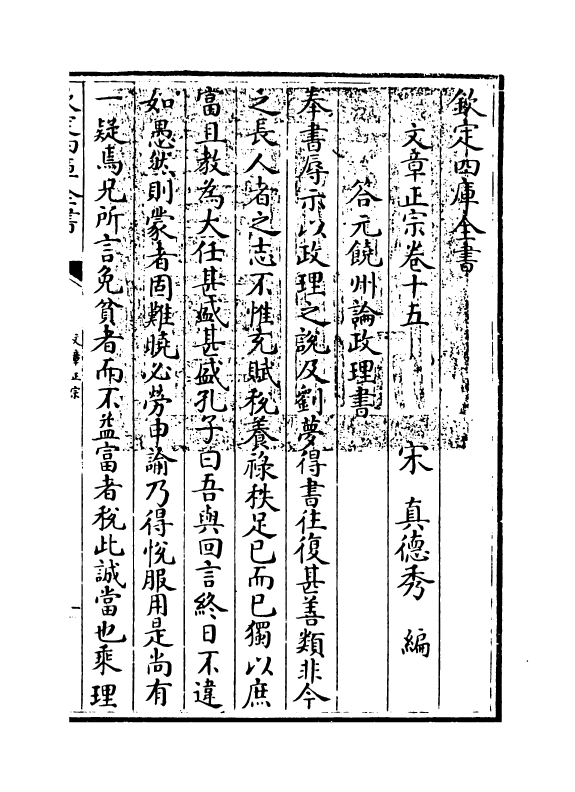 欽定四庫全書
文章正宗卷十五
宋 真德秀 編
答元饒州論政理書
奉書辱示以政理之說及劉夢得書往復甚善類非今
之長人者之志不惟充賦稅養祿秩足已而已獨以庶
富且教為大任甚盛甚盛孔子曰吾與回言終日不違
如愚然則蒙者固難曉必勞申諭乃得悅服用是尚有
一疑焉兄所言免貧者而不益富者稅此誠當也乘理
文章正宗
一